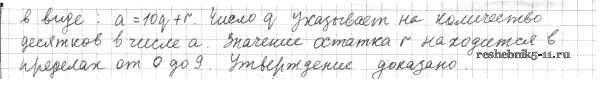 в виде: a = 10q + r. Число q указывает на количество
десятков в числе a. Значение остатка r находится в
пределах от 0 до 9. Утверждение доказано.
reshebnik5-11.ru